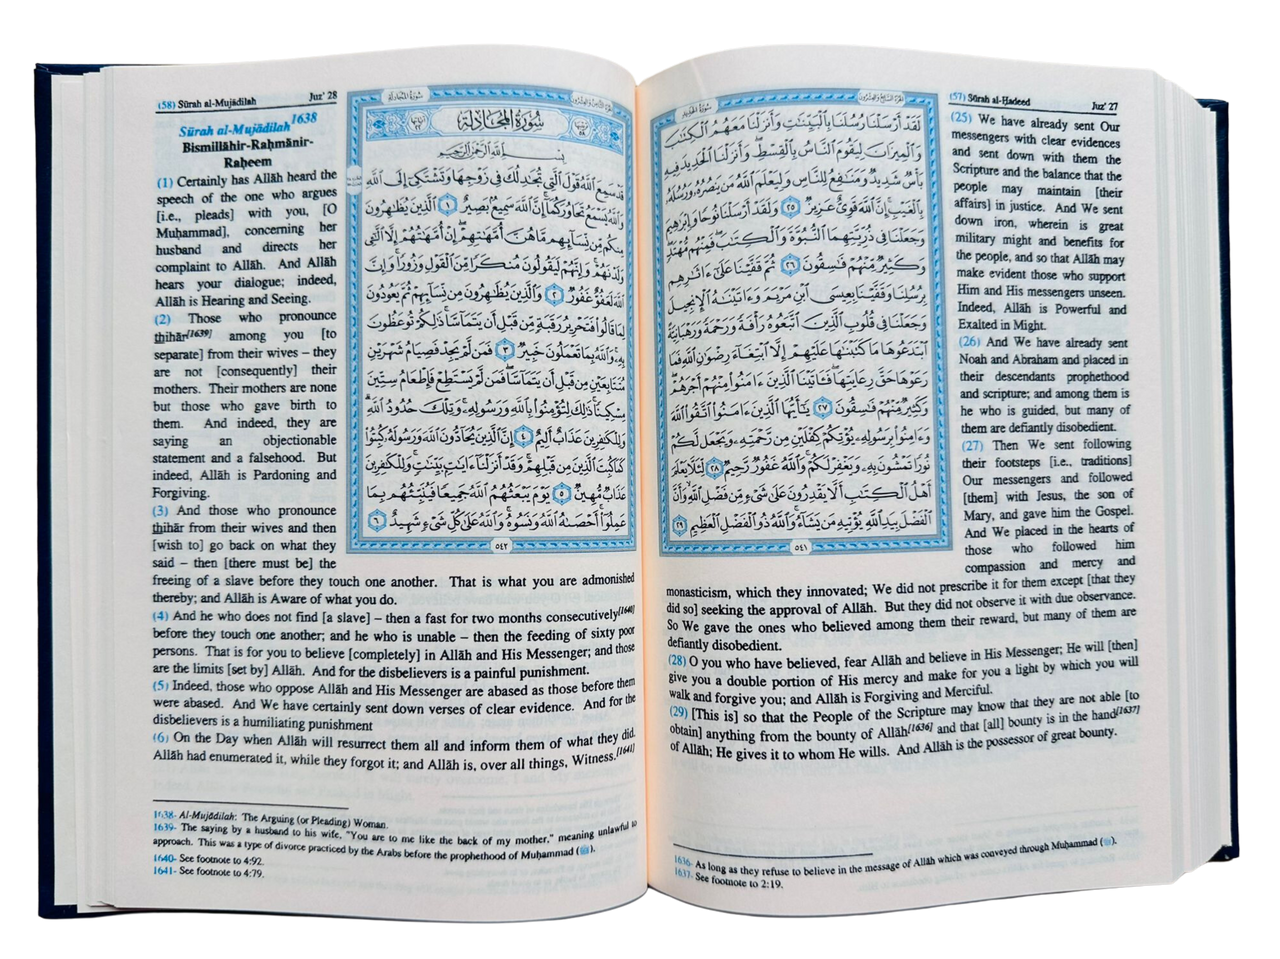 سُورَةُ الحَدِيدِ
الجُزْءُ السَّابِعُ وَالعِشْرُونَ
(57) Sūrah al-Ḥadeed Juz' 27
لَقَدْ أَرْسَلْنَا رُسُلَنَا بِٱلْبَيِّنَٰتِ وَأَنزَلْنَا مَعَهُمُ ٱلْكِتَٰبَ
وَٱلْمِيزَانَ لِيَقُومَ ٱلنَّاسُ بِٱلْقِسْطِ وَأَنزَلْنَا ٱلْحَدِيدَ فِيهِ
بَأْسٌ شَدِيدٌ وَمَنَٰفِعُ لِلنَّاسِ وَلِيَعْلَمَ ٱللَّهُ مَن يَنصُرُهُۥ وَرُسُلَهُۥ
بِٱلْغَيْبِ إِنَّ ٱللَّهَ قَوِيٌّ عَزِيزٌ ٢٥ وَلَقَدْ أَرْسَلْنَا نُوحًا وَإِبْرَٰهِيمَ
وَجَعَلْنَا فِى ذُرِّيَّتِهِمَا ٱلنُّبُوَّةَ وَٱلْكِتَٰبَ فَمِنْهُم مُّهْتَدٍ
وَكَثِيرٌ مِّنْهُمْ فَٰسِقُونَ ٢٦ ثُمَّ قَفَّيْنَا عَلَىٰٓ ءَاثَٰرِهِم
بِرُسُلِنَا وَقَفَّيْنَا بِعِيسَى ٱبْنِ مَرْيَمَ وَءَاتَيْنَٰهُ ٱلْإِنجِيلَ
وَجَعَلْنَا فِى قُلُوبِ ٱلَّذِينَ ٱتَّبَعُوهُ رَأْفَةً وَرَحْمَةً وَرَهْبَانِيَّةً
ٱبْتَدَعُوهَا مَا كَتَبْنَٰهَا عَلَيْهِمْ إِلَّا ٱبْتِغَآءَ رِضْوَٰنِ ٱللَّهِ فَمَا
رَعَوْهَا حَقَّ رِعَايَتِهَا فَـَٔاتَيْنَا ٱلَّذِينَ ءَامَنُوا۟ مِنْهُمْ أَجْرَهُمْ
وَكَثِيرٌ مِّنْهُمْ فَٰسِقُونَ ٢٧ يَٰٓأَيُّهَا ٱلَّذِينَ ءَامَنُوا۟ ٱتَّقُوا۟ ٱللَّهَ
وَءَامِنُوا۟ بِرَسُولِهِۦ يُؤْتِكُمْ كِفْلَيْنِ مِن رَّحْمَتِهِۦ وَيَجْعَل لَّكُمْ
نُورًا تَمْشُونَ بِهِۦ وَيَغْفِرْ لَكُمْ وَٱللَّهُ غَفُورٌ رَّحِيمٌ ٢٨ لِّئَلَّا يَعْلَمَ
أَهْلُ ٱلْكِتَٰبِ أَلَّا يَقْدِرُونَ عَلَىٰ شَىْءٍ مِّن فَضْلِ ٱللَّهِ وَأَنَّ
ٱلْفَضْلَ بِيَدِ ٱللَّهِ يُؤْتِيهِ مَن يَشَآءُ وَٱللَّهُ ذُو ٱلْفَضْلِ ٱلْعَظِيمِ ٢٩
٥٤١
(25) We have already sent Our
messengers with clear evidences
and sent down with them the
Scripture and the balance that the
people may maintain [their
affairs] in justice. And We sent
down iron, wherein is great
military might and benefits for
the people, and so that Allāh may
make evident those who support
Him and His messengers unseen.
Indeed, Allāh is Powerful and
Exalted in Might.
(26) And We have already sent
Noah and Abraham and placed in
their descendants prophethood
and scripture; and among them is
he who is guided, but many of
them are defiantly disobedient.
(27) Then We sent following
their footsteps [i.e., traditions]
Our messengers and followed
[them] with Jesus, the son of
Mary, and gave him the Gospel.
And We placed in the hearts of
those who followed him
compassion and mercy and
monasticism, which they innovated; We did not prescribe it for them except [that they
did so] seeking the approval of Allāh. But they did not observe it with due observance.
So We gave the ones who believed among them their reward, but many of them are
defiantly disobedient.
(28) O you who have believed, fear Allāh and believe in His Messenger; He will [then]
give you a double portion of His mercy and make for you a light by which you will
walk and forgive you; and Allāh is Forgiving and Merciful.
(29) [This is] so that the People of the Scripture may know that they are not able [to
obtain] anything from the bounty of Allāh[1636] and that [all] bounty is in the hand[1637]
of Allāh; He gives it to whom He wills. And Allāh is the possessor of great bounty.
1636- As long as they refuse to believe in the message of Allāh which was conveyed through Muḥammad (ﷺ).
1637- See footnote to 2:19.
(58) Sūrah al-Mujādilah Juz' 28
Sūrah al-Mujādilah1638
Bismillāhir-Raḥmānir-
Raḥeem
(1) Certainly has Allāh heard the
speech of the one who argues
[i.e., pleads] with you, [O
Muḥammad], concerning her
husband and directs her
complaint to Allāh. And Allāh
hears your dialogue; indeed,
Allāh is Hearing and Seeing.
(2) Those who pronounce
thihār[1639] among you [to
separate] from their wives – they
are not [consequently] their
mothers. Their mothers are none
but those who gave birth to
them. And indeed, they are
saying an objectionable
statement and a falsehood. But
indeed, Allāh is Pardoning and
Forgiving.
(3) And those who pronounce
thihār from their wives and then
[wish to] go back on what they
said – then [there must be] the
freeing of a slave before they touch one another. That is what you are admonished
thereby; and Allāh is Aware of what you do.
(4) And he who does not find [a slave] – then a fast for two months consecutively[1640]
before they touch one another; and he who is unable – then the feeding of sixty poor
persons. That is for you to believe [completely] in Allāh and His Messenger; and those
are the limits [set by] Allāh. And for the disbelievers is a painful punishment.
(5) Indeed, those who oppose Allāh and His Messenger are abased as those before them
were abased. And We have certainly sent down verses of clear evidence. And for the
disbelievers is a humiliating punishment
(6) On the Day when Allāh will resurrect them all and inform them of what they did.
Allāh had enumerated it, while they forgot it; and Allāh is, over all things, Witness.[1641]
سُورَةُ المُجَادلة
الجُزْءُ الثَّامِنُ وَالعِشْرُونَ
سُورَةُ المُجَادلة
بِسْمِ ٱللَّهِ ٱلرَّحْمَٰنِ ٱلرَّحِيمِ
قَدْ سَمِعَ ٱللَّهُ قَوْلَ ٱلَّتِى تُجَٰدِلُكَ فِى زَوْجِهَا وَتَشْتَكِىٓ إِلَى ٱللَّهِ
وَٱللَّهُ يَسْمَعُ تَحَاوُرَكُمَآ إِنَّ ٱللَّهَ سَمِيعٌۢ بَصِيرٌ ١ ٱلَّذِينَ يُظَٰهِرُونَ
مِنكُم مِّن نِّسَآئِهِم مَّا هُنَّ أُمَّهَٰتِهِمْ إِنْ أُمَّهَٰتُهُمْ إِلَّا ٱلَّٰٓـِٔى
وَلَدْنَهُمْ وَإِنَّهُمْ لَيَقُولُونَ مُنكَرًا مِّنَ ٱلْقَوْلِ وَزُورًا وَإِنَّ
ٱللَّهَ لَعَفُوٌّ غَفُورٌ ٢ وَٱلَّذِينَ يُظَٰهِرُونَ مِن نِّسَآئِهِمْ ثُمَّ يَعُودُونَ
لِمَا قَالُوا۟ فَتَحْرِيرُ رَقَبَةٍ مِّن قَبْلِ أَن يَتَمَآسَّا ذَٰلِكُمْ تُوعَظُونَ
بِهِۦ وَٱللَّهُ بِمَا تَعْمَلُونَ خَبِيرٌ ٣ فَمَن لَّمْ يَجِدْ فَصِيَامُ شَهْرَيْنِ
مُتَتَابِعَيْنِ مِن قَبْلِ أَن يَتَمَآسَّا فَمَن لَّمْ يَسْتَطِعْ فَإِطْعَامُ سِتِّينَ
مِسْكِينًا ذَٰلِكَ لِتُؤْمِنُوا۟ بِٱللَّهِ وَرَسُولِهِۦ وَتِلْكَ حُدُودُ ٱللَّهِ
وَلِلْكَٰفِرِينَ عَذَابٌ أَلِيمٌ ٤ إِنَّ ٱلَّذِينَ يُحَآدُّونَ ٱللَّهَ وَرَسُولَهُۥ كُبِتُوا۟
كَمَا كُبِتَ ٱلَّذِينَ مِن قَبْلِهِمْ وَقَدْ أَنزَلْنَآ ءَايَٰتٍۭ بَيِّنَٰتٍ وَلِلْكَٰفِرِينَ
عَذَابٌ مُّهِينٌ ٥ يَوْمَ يَبْعَثُهُمُ ٱللَّهُ جَمِيعًا فَيُنَبِّئُهُم بِمَا
عَمِلُوٓا۟ أَحْصَىٰهُ ٱللَّهُ وَنَسُوهُ وَٱللَّهُ عَلَىٰ كُلِّ شَىْءٍ شَهِيدٌ ٦
٥٤٢
1638- Al-Mujādilah: The Arguing (or Pleading) Woman.
1639- The saying by a husband to his wife, "You are to me like the back of my mother," meaning unlawful to
approach. This was a type of divorce practiced by the Arabs before the prophethood of Muḥammad (ﷺ).
1640- See footnote to 4:92.
1641- See footnote to 4:79.